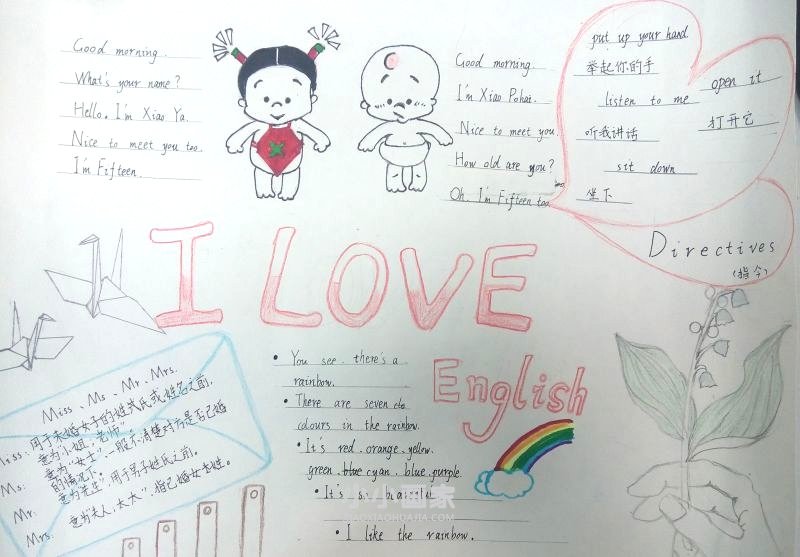 Good morning.
What's your name?
Hello. I'm Xiao Ya.
Nice to meet you too.
I'm Fifteen.
Good morning.
I'm Xiao Pohai.
Nice to meet you.
How old are you?
Oh. I'm Fifteen too.
put up your hand
举起你的手
listen to me
听我讲话
sit down
坐下
open it
打开它
Directives
(指令)
I LOVE
English
Miss、Ms、Mr、Mrs.
Miss: 用于未婚女子的姓式氏或姓名之前.
意为"小姐、老师".
Ms: 意为"女士",一般不清楚对方是否已婚
的情况下.
Mr: 意为"先生",用于男子姓氏之前。
Mrs: 意为"夫人、太太",指已婚女士姓。
• You see. there's a
rainbow.
• There are seven clo
colours in the rainbow.
• It's red. orange. yellow.
green. blue cyan. blue. purple.
• It's so beautiful
• I like the rainbow.
小小画家
XIAOXIAOHUAJIA.COM